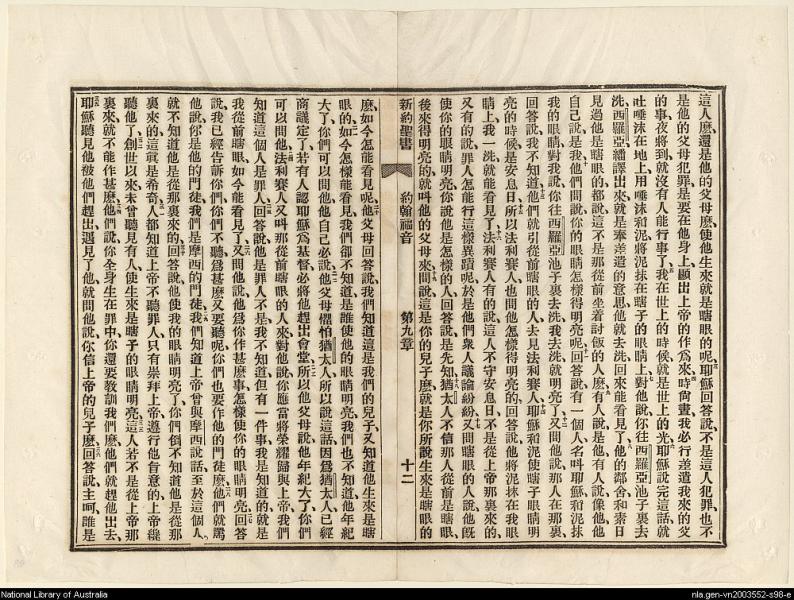 這人麼、還是他的父母麼、使他生來就是瞎眼的呢、耶穌回答說、不是這人犯罪、也不
是他的父母犯罪、是要在他身上、顯出上帝的作爲來、時尙晝、我必行差遣我來的父
的事、夜將到、就沒有人能行事了、我在世上的時候、就是世上的光、耶穌說完這話、就
吐唾沫在地上、用唾沫和泥、將泥抹在瞎子的眼睛上、對他說、你往西羅亞池子裏去
洗、西羅亞繙譯出來、就是奉差遣的意思、他就去洗、回來能看見了、他的鄰舍和素日
見過他是瞎眼的、都說、這不是那從前坐着討飯的人麼、有人說是他、有人說像他、他
自己說是我、他們問說、你的眼睛怎樣得明亮呢、回答說、有一個人、名叫耶穌、和泥抹
我的眼睛、對我說、你往西羅亞池子裏去洗、我去洗就明亮了、又問他說、那人在那裏、
回答說、我不知道、他們就引從前瞎眼的人、去見法利賽人、耶穌和泥使瞎子眼睛明
亮的時候、是安息日、所以法利賽人也問他怎樣得明亮的、回答說、他將泥抹在我眼
睛上、我一洗就能看見了、法利賽人有的說、這人不守安息日、不是從上帝那裏來的、
又有的說、罪人怎能行這樣異蹟呢、於是他們衆人議論紛紛、又問瞎眼的人說、他旣
使你的眼睛明亮、你說他是怎樣的人、回答說、是先知、猶太人不信那人從前是瞎眼、
後來得明亮的、就叫他的父母來、問說、這是你的兒子麼、就是你所說生來是瞎眼的
新約聖書 約翰福音 第九章 十二
麼、如今怎能看見呢、他父母回答說、我們知道這是我們的兒子、又知道他生來是瞎
眼的、如今怎樣能看見、我們卻不知道、是誰使他的眼睛明亮、我們也不知道、他年紀
大了、你們可以問他、他自己必說、他父母懼怕猶太人、所以說這話、因爲猶太人已經
商議定了、若有人認耶穌爲基督、必將他趕出會堂、所以他父母說、他年紀大了、你們
可以問他、法利賽人又叫那從前瞎眼的人來、對他說、你應當將榮耀歸與上帝、我們
知道這個人是罪人、回答說、他是罪人不是、我不知道、但有一件事我是知道的、就是
我從前瞎眼、如今能看見了、又問他、他爲你作甚麼事、怎樣使你的眼睛明亮、回答
說、我已經告訴你們、你們不聽、爲甚麼又要聽呢、你們也要作他的門徒麼、他們就罵
他說、你是他的門徒、我們是摩西的門徒、我們知道上帝曾與摩西說話、至於這個人、
就不知道他是從那裏來的、回答說、他使我的眼睛明亮了、你們倒不知道他是從那
裏來的、這眞是希奇、人都知道上帝不聽罪人、只有崇拜上帝、遵行他旨意的、上帝纔
聽他、從創世以來、未曾聽見有人使生來是瞎子的眼睛明亮、這人若不是從上帝那
裏來、就不能作甚麼、他們說、你全身生在罪中、你還要敎訓我們麼、他們就趕他出去、
耶穌聽見他被他們趕出、遇見了他、就問他說、你信上帝的兒子麼、回答說、主呵、誰是
National Library of Australia
nla.gen-vn2003552-s98-e